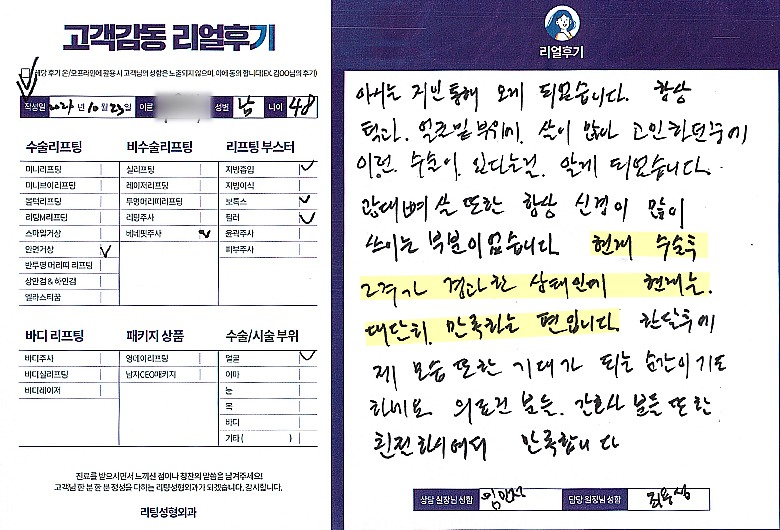 고객감동 리얼후기
해당 후기 온/오프라인에 활용시 고객님의 성함은 노출되지 않으며, 이에 동의 합니다(EX.김OO님의 후기)
작성일 2023년 10월 23일 이름 성별 남 나이 48
수술리프팅 비수술리프팅 리프팅 부스터
미니리프팅 실리프팅 지방흡입
미니브이리프팅 레이저리프팅 지방이식
울턱리프팅 투명머리띠리프팅 보톡스
리팅M리프팅 리팅주사 필러
스마일거상 베네핏주사 윤곽주사
안면거상 피부주사
반투명 머리띠 리프팅
상안검 & 하안검
엘라스티꿈
바디 리프팅 패키지 상품 수술/시술 부위
바디주사 영데이리프팅 얼굴
바디실리프팅 남자CEO패키지 이마
바디레이저 눈
목
바디
기타 ( )
진료를 받으시면서 느끼신 점이나 칭찬의 말씀을 남겨주세요!
고객님 한 분 한 분 정성을 다하는 리팅성형외과가 되겠습니다. 감사합니다.
리팅성형외과
리얼후기
아서는 지인통해 오게 되었습니다. 항상
턱과. 얼굴밑 부위에. 살이 많아 고민하던중에
이런. 수술이. 있다는걸. 알게 되었습니다.
광대뼈 살 또한 항상 신경이 많이
쓰이는 부분이였습니다. 현재 수술후
2주가 경과한 상태인데 현재는.
대단히. 만족하는 편입니다. 한달후에
제 모습 또한 기대가 되는 순간이기도
하네요. 의료진 분들. 간호사 분들 또한
친절하시여서 만족합니다
상담 실장님 성함 담당 원장님 성함